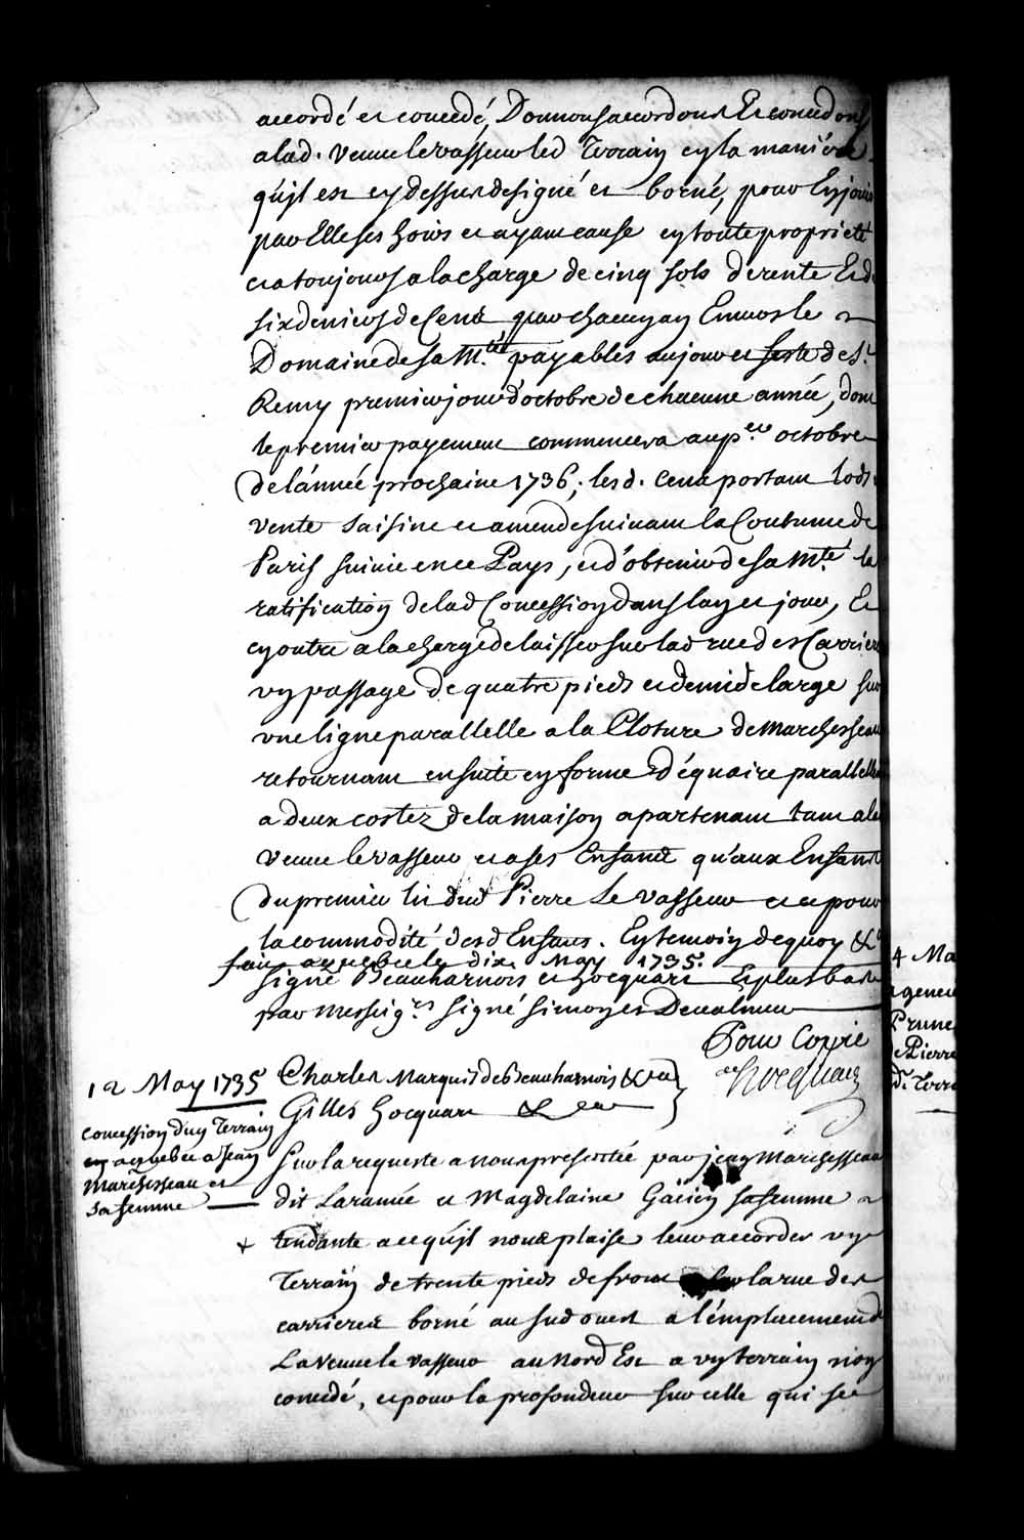 accordé et concedé, Donnons accordons Et concedons
a lad. veuve levasseur led Terrain en la maniére
qu'jl est cy dessus designé et borné, pour En jouir
par Elle ses hoirs et ayant cause en toute proprieté
et a toujours a la charge de cinq sols de rente Et de
six deniers de Cens par chacun an Envers le
Domaine de sa M.té payables au jour et feste de St.
Remy premier jour d'octobre de chacune année, dont
le premier payement commencera au p.er octobre
de l'année prochaine 1736; lesd. Cens portant lods
vente saisine et amende suivant la Coutume de
Paris suivie en ce Pays, et d'obtenir de sa M.té la
ratification de lad Concession dans l'an et jour, Et
en outre a la charge de laisser sur lad rue des Carrieres
un passage de quatre pieds et demi de large sur
une ligne parallelle a la Cloture de Marchesseau
retournant ensuite en forme d'équaire parallelle
a deux costez de la maison apartenant tant a la
veuve levasseur et a ses Enfans qu'aux Enfans
du premier lit dud Pierre Le vasseur et ce pour
la commodité desd Enfans. En temoin de quoy &a
fait a quebec le dix May 1735.
signé Beauharnois et hocquart Et plus bas
par Messeig.rs signé simonet Devalmur
Pour Copie
Hocquart
12 May 1735
Concession d'un Terrain
en a quebec a Jean
Marchesseau et
sa femme
Charles Marquis de Beauharnois &ca
Gilles hocquart &ca
Sur la requeste a nous presentée par jean Marchesseau
dit Laramée et Magdelaine Gatien sa femme
+ tendante a ce qu'jl nous plaise leur accorder un
Terrain de trente pieds de front sur la rue des
carrieres borné au sud ouest a l'émplacement de
La veuve le vasseur au Nord Est a un terrain non
concedé, et pour la profondeur sur celle qui se
4 Ma
Prune
de Pierre